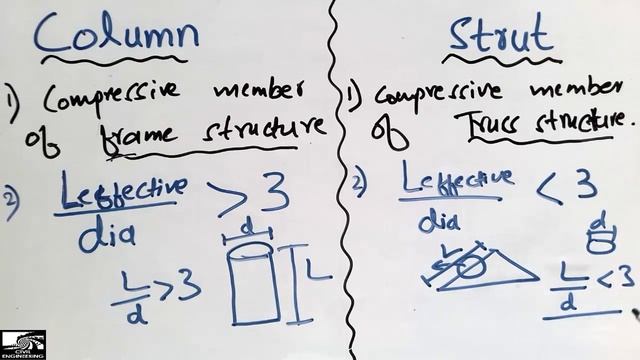 Column
1) Compressive member
of frame structure
2) Leffective / dia > 3
d
L
L/d > 3
Strut
1) compressive member
of Truss structure.
2) Leffective / dia < 3
d
L
L/d < 3
CIVIL
ENGINEERING